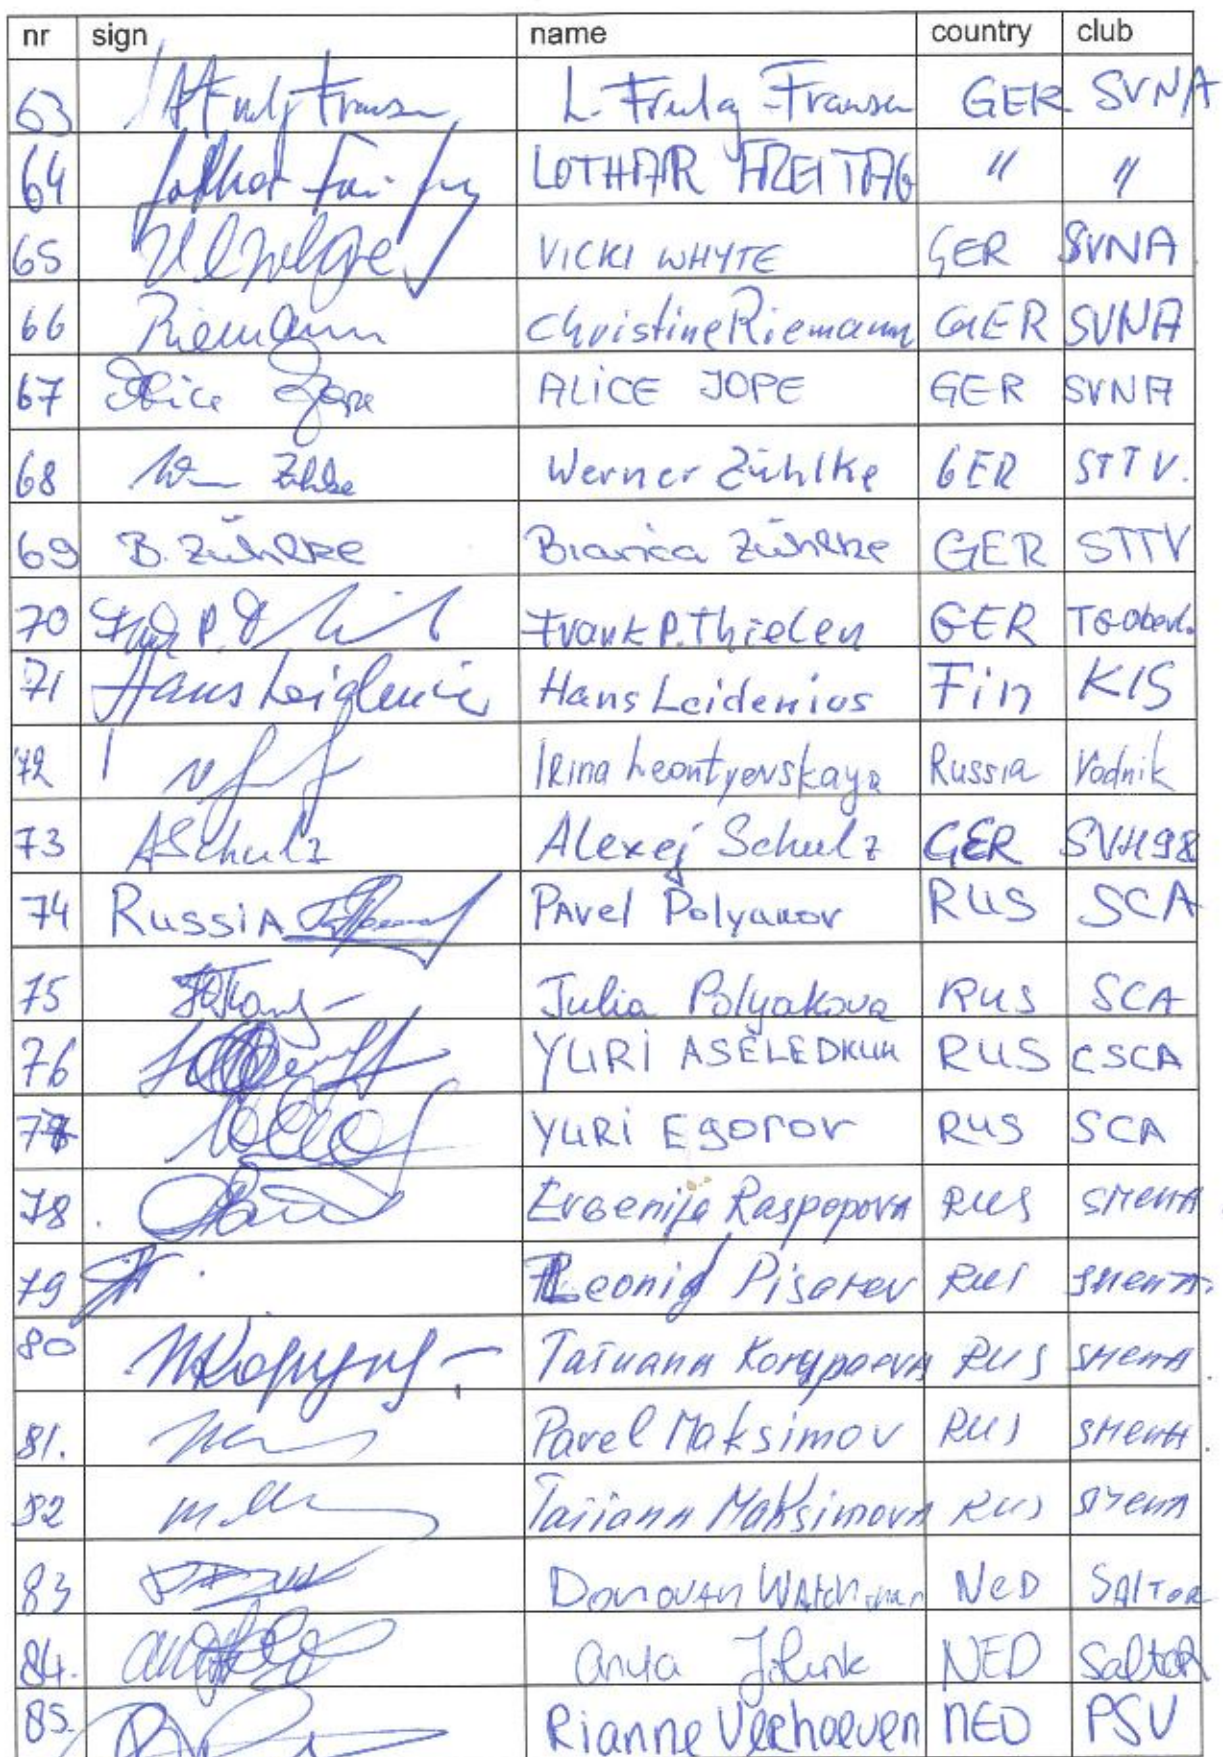 nr sign name country club
63 L. Fransen GER SVNA
64 LOTHAR FREITAG " "
65 VICKI WHYTE GER SVNA
66 Riemann Christine Riemann GER SVNA
67 Alice Jope ALICE JOPE GER SVNA
68 Zühlke Werner Zühlke GER STTV.
69 B. Zühlke Bianca Zühlke GER STTV
70 Frank P. Thielen GER TG Oberl.
71 Hans Leidenius Hans Leidenius Fin KIS
72 Irina Leontyevskaya Russia Vodnik
73 ASchulz Alexej Schulz GER SVH98
74 Russia Pavel Polyakov RUS SCA
75 Julia Polyakova RUS SCA
76 YURI ASELEDKUH RUS CSCA
77 YURI Egorov RUS SCA
78 Evgenija Raspopova RUS SMENA
79 Leonid Pisarev RUS SMENA.
80 RUS SMENA.
81. Pavel Maksimov RUS SMENA.
82 Tatiana Maksimova RUS SMENA
83 Donovan Watchman NED SALTOR
84. Anya NED SaltoR
85. Rianne Verhoeven NED PSV